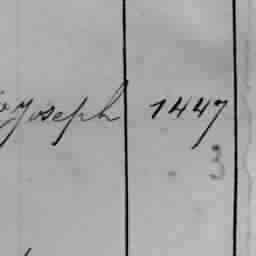 Joseph 1447
3